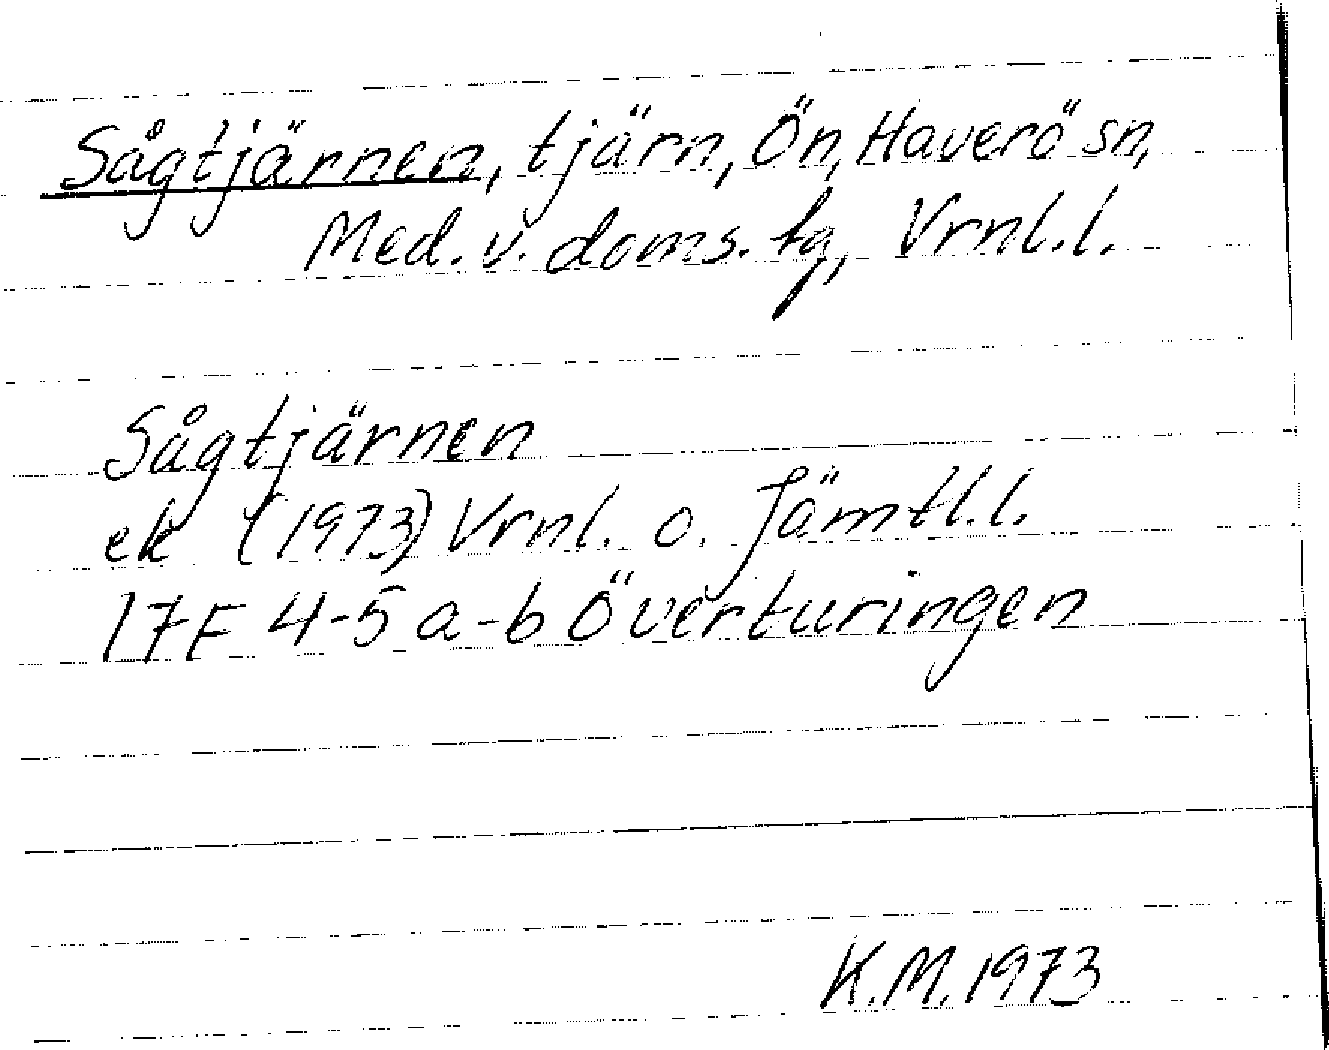 Sågtjärnen, tjärn, Ön, Haverö sn,
Med. v. doms. tg, Vrnl. l.
Sågtjärnen
ek (1973) Vrnl. o. Jämtl. l.
17F 4-5 a-b Överturingen
K.M. 1973